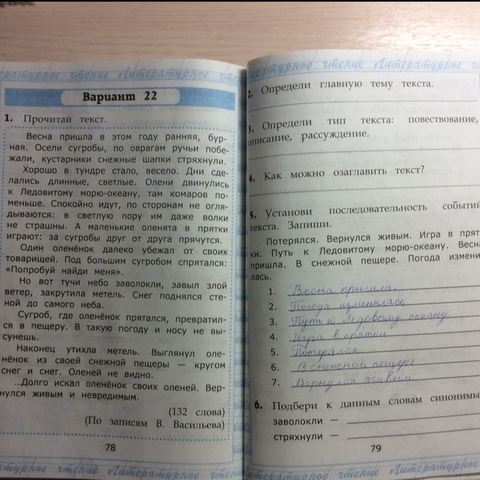 Литературное чтение Литературное
Вариант 22
1. Прочитай текст.
Весна пришла в этом году ранняя, бур-
ная. Осели сугробы, по оврагам ручьи побе-
жали, кустарники снежные шапки стряхнули.
Хорошо в тундре стало, весело. Дни сде-
лались длинные, светлые. Олени двинулись
к Ледовитому морю-океану, там комаров по-
меньше. Спокойно идут, по сторонам не огля-
дываются: в светлую пору им даже волки
не страшны. А маленькие оленята в прятки
играют: за сугробы друг от друга прячутся.
Один оленёнок далеко убежал от своих
товарищей. Под большим сугробом спрятался:
«Попробуй найди меня».
Но вот тучи небо заволокли, завыл злой
ветер, закрутила метель. Снег поднялся сте-
ной до самого неба.
Сугроб, где оленёнок прятался, преврати-
ся в пещеру. В такую погоду и носу не вы-
сунешь.
Наконец утихла метель. Выглянул оле-
нёнок из своей снежной пещеры — кругом
снег и снег. Оленей не видно.
...Долго искал оленёнок своих оленей. Вер-
нулся живым и невредимым.
(132 слова)
(По записям В. Васильева)
78
Литературное чтение Литературное
Литературное чтение Литературное
2. Определи главную тему текста.
3. Определи тип текста: повествование,
описание, рассуждение.
4. Как можно озаглавить текст?
5. Установи последовательность событий
текста. Запиши.
Потерялся. Вернулся живым. Игра в прят-
ки. Путь к Ледовитому морю-океану. Весна
пришла. В снежной пещере. Погода измени-
лась.
1. Весна пришла.
2. Погода изменилась
3. Путь к Ледовому океану
4. Игра в прятки
5. Потерялся
6. В снежной пещере
7. Вернулся живым
6. Подбери к данным словам синонимы
заволокли —
стряхнули —
79
чтение Литературное чтение